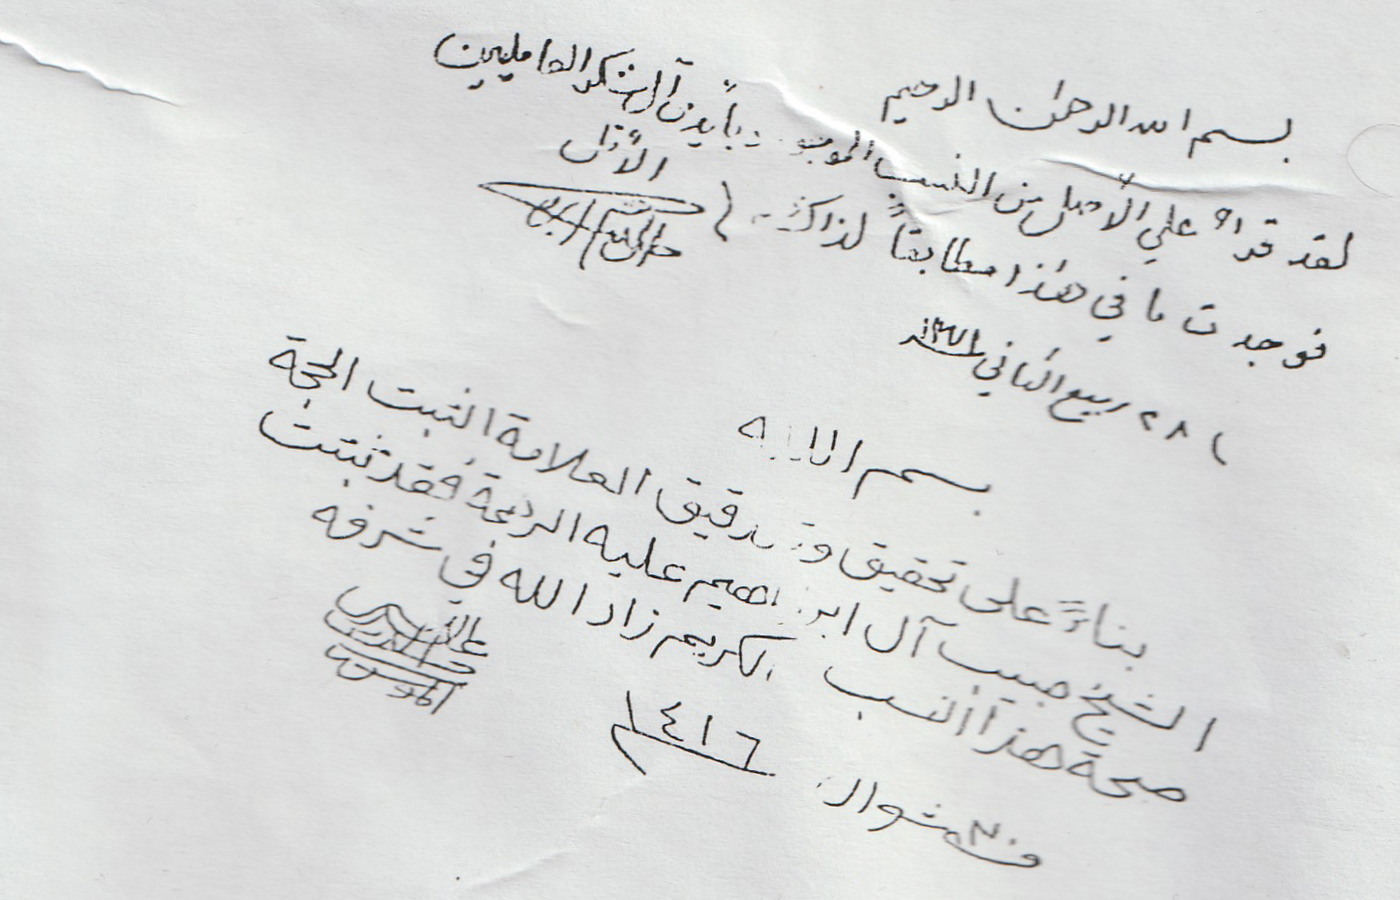 بسم الله الرحمن الرحيم
لقد قرأ علي الأصل من النسب الموجود بأيدي آل شكر العامليين
فوجدت ما في هذا مطابقاً لذاك
الأقل
٢٨ ربيع الثاني
بسم الله
بناءً على تحقيق وتدقيق العلامة الثبت الحجة
الشيخ حبيب آل ابراهيم عليه الرحمة فقد ثبتت
صحة هذا النسب الكريم زاد الله في شرفه
شوال ١٤١٦
الموسوي